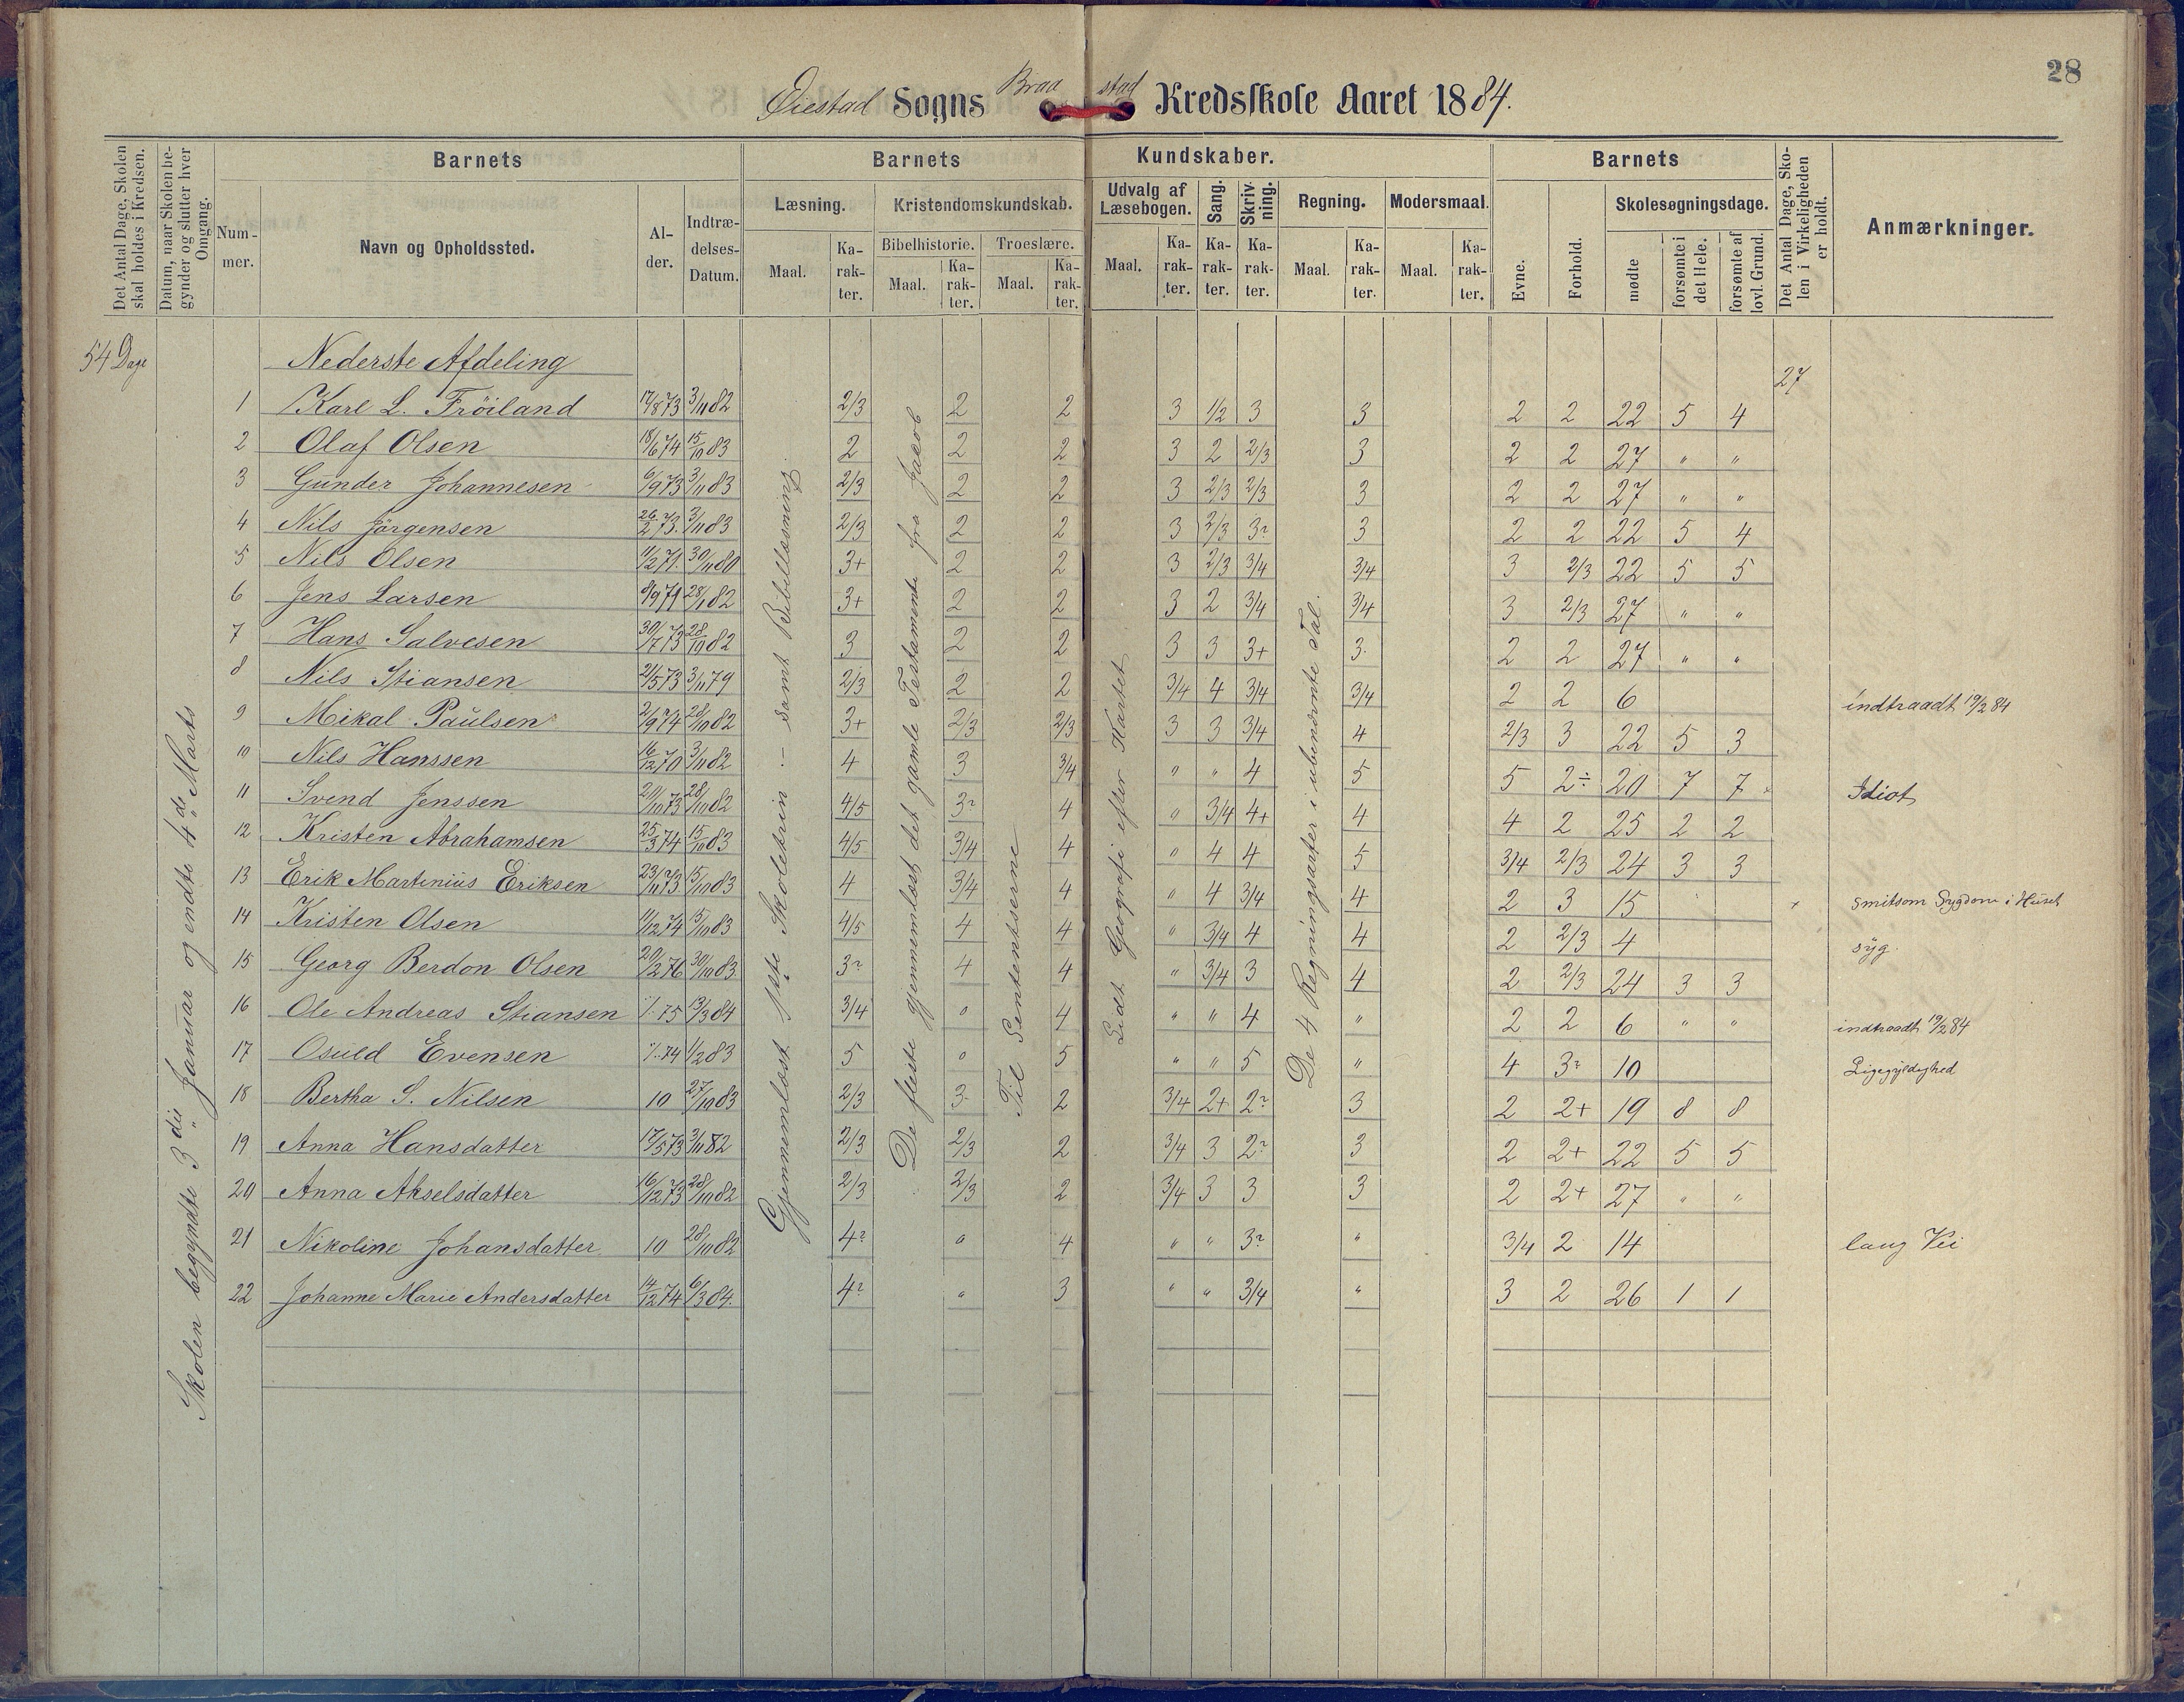 28
Øiestad Sogns Braastad Kredsskole Aaret 1884.
Det Antal Dage, Skolen skal holdes i Kredsen.
Datum, naar Skolen begynder og slutter hver Omgang.
Nummer.
Barnets
Navn og Opholdssted.
Alder.
Indtrædelses-Datum.
Barnets Kundskaber.
Læsning.
Maal. Karakter.
Kristendomskundskab.
Bibelhistorie. Troeslære.
Maal. Karakter. Maal. Karakter.
Udvalg af Læsebogen.
Maal. Karakter.
Sang. Karakter.
Skrivning. Karakter.
Regning.
Maal. Karakter.
Modersmaal.
Maal. Karakter.
Barnets
Evne. Forhold.
Skolesøgningsdage.
mødte
forsømte i det Hele.
forsømte af lovl. Grund.
Det Antal Dage, Skolen i Virkeligheden er holdt.
Anmærkninger.
54 Dage
Skolen begyndte 3die Januar og endte 4de Marts
Gjennemlæst 1ste Skoletrin – samt Bibellæsning.
De fleste gjennemlæst det gamle Testamente fra Jacob
Til Sententserne
Lidt Geografi efter Kartet
De 4 Regningsarter i ubenævnte Tal.
Nederste Afdeling 27
1 Karl L. Fröiland 17/8 73 3/11 82 2/3 2 2 3 1/2 3 3 2 2 22 5 4
2 Olaf Olsen 18/6 74 15/10 83 2 2 2 3 2 2/3 3 2 2 27 " "
3 Gunder Johannesen 6/9 73 3/11 83 2/3 2 2 3 2/3 2/3 3 2 2 27 " "
4 Nils Jörgensen 26/2 73. 3/11 83 2/3 2 2 3 2/3 3? 3 2 2 22 5 4
5 Nils Olsen 11/2 71. 30/11 80 3+ 2 2 3 2/3 3/4 3/4 3 2/3 22 5 5
6 Jens Larsen 8/9 71 28/1 82 3+ 2 2 3 2 3/4 3/4 3 2/3 27 " "
7 Hans Salvesen 30/7 73 28/10 82 3 2 2 3 3 3+ 3. 2 2 27 " "
8 Nils Stiansen 21/5 73 3/11 79 2/3 2 2 3/4 4 3/4 3/4 2 2 6 indtraadt 19/2 84
9 Mikal Paulsen 2/9 74 28/10 82 3+ 2/3 2/3 3 3 3/4 4 2/3 3 22 5 3
10 Nils Hanssen 16/12 70 3/11 82 4 3 3/4 " " 4 5 5 2÷ 20 7 7 Idiot
11 Svend Jenssen 20/10 73 28/10 82 4/5 3? 4 " 3/4 4+ 4 4 2 25 2 2
12 Kristen Abrahamsen 25/3 74 15/10 83 4/5 3/4 4 " 4 4 5 3/4 2/3 24 3 3
13 Erik Martinius Eriksen 23/11 73 15/10 83 4 3/4 4 " 4 3/4 4 2 3 15 + smitsom Sygdom i Huset
14 Kristen Olsen 11/12 74 15/10 83 4/5 4 4 " 3/4 4 4 2 2/3 4 syg
15 Georg Berdon Olsen 20/2 76 30/10 83 3? 4 4 " 3/4 3 4 2 2/3 24 3 3
16 Ole Andreas Stiansen 75 13/3 84 3/4 " 4 " " 4 " 2 2 6 " " indtraadt 19/2 84
17 Osuld Evensen 74 1/2 83 5 " 5 " " 5 " 4 3? 10 Ligegyldighed
18 Bertha S. Nilsen 10 27/10 83 2/3 3 2 3/4 2+ 2? 3 2 2+ 19 8 8
19 Anna Hansdatter 17/5 73 3/11 82 2/3 2/3 2 3/4 3 2? 3 2 2+ 22 5 5
20 Anna Akselsdatter 16/12 73 28/10 82 2/3 2/3 2 3/4 3 3 3 2 2+ 27 " "
21 Nikoline Johansdatter 10 28/10 82 4? " 4 " " 3? " 3/4 2 14 lang Vei
22 Johanne Marie Andersdatter 14/12 74 6/3 84. 4? " 3 " " 3/4 " 3 2 26 1 1